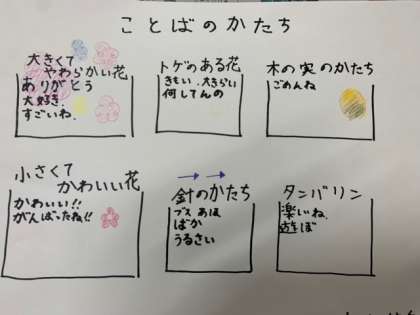 ことばのかたち
大きくて
やわらかい花
ありがとう
大好き
すごいね。
トゲのある花
きもい.大きらい
何してんの
木の実のかたち
ごめんね
小さくて
かわいい花
かわいい!!
がんばったね!!
針のかたち
ブス あほ
ばか
うるさい
タンバリン
楽しいね
遊ぼ